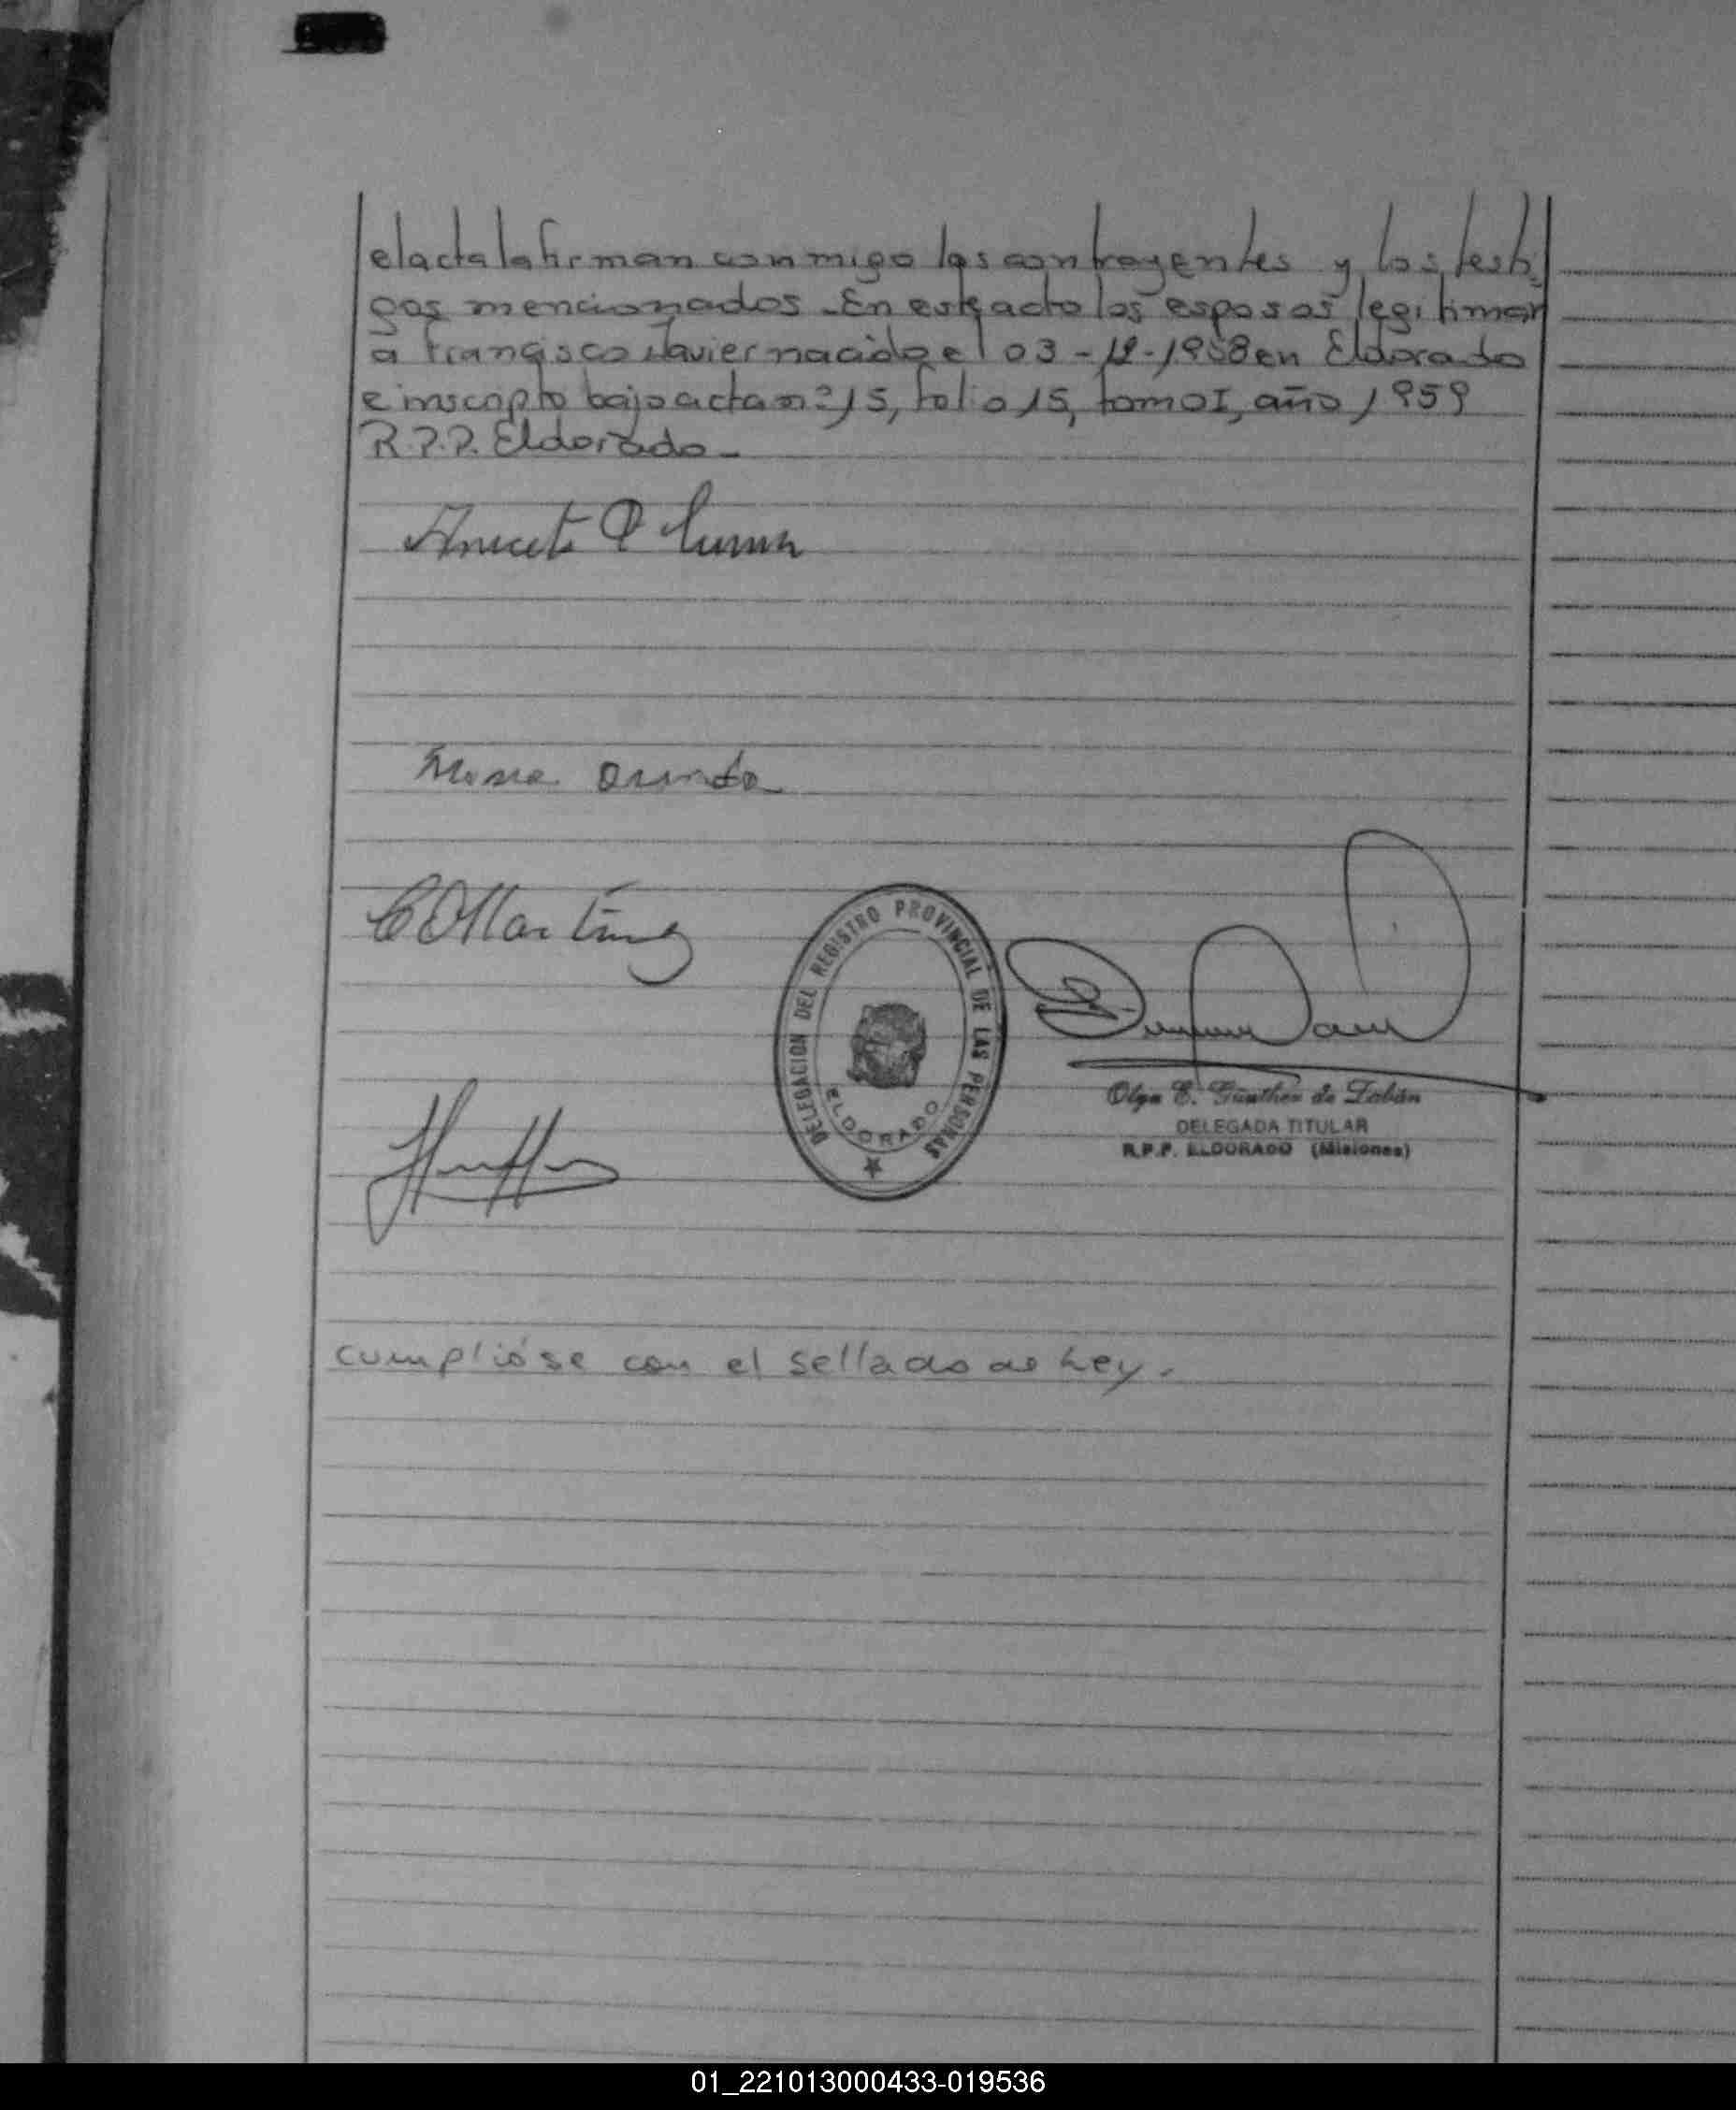 el acta la firman conmigo los contrayentes y los testi-
gos mencionados.- En este acto los esposos legitiman
a Francisco Javier nacido el 03-12-1958 en Eldorado
e inscripto bajo acta nº 15, folio 15, tomo I, año 1959
R.P.P. Eldorado.-
Aniceto
C Martínez
DELEGACION DEL REGISTRO PROVINCIAL DE LAS PERSONAS
ELDORADO
Olga E. Günther de Zabán
DELEGADA TITULAR
R.P.P. ELDORADO (Misiones)
cumplióse con el sellado de Ley.
01_221013000433-019536